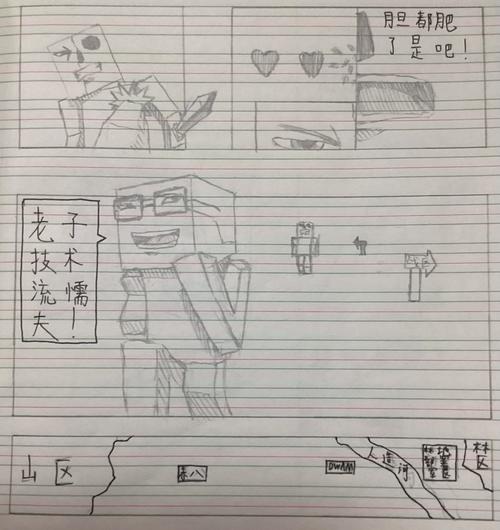 胆都肥
了是吧！
老子
技术
流懦
夫！
山区
老八
DWAM
人造河
林区